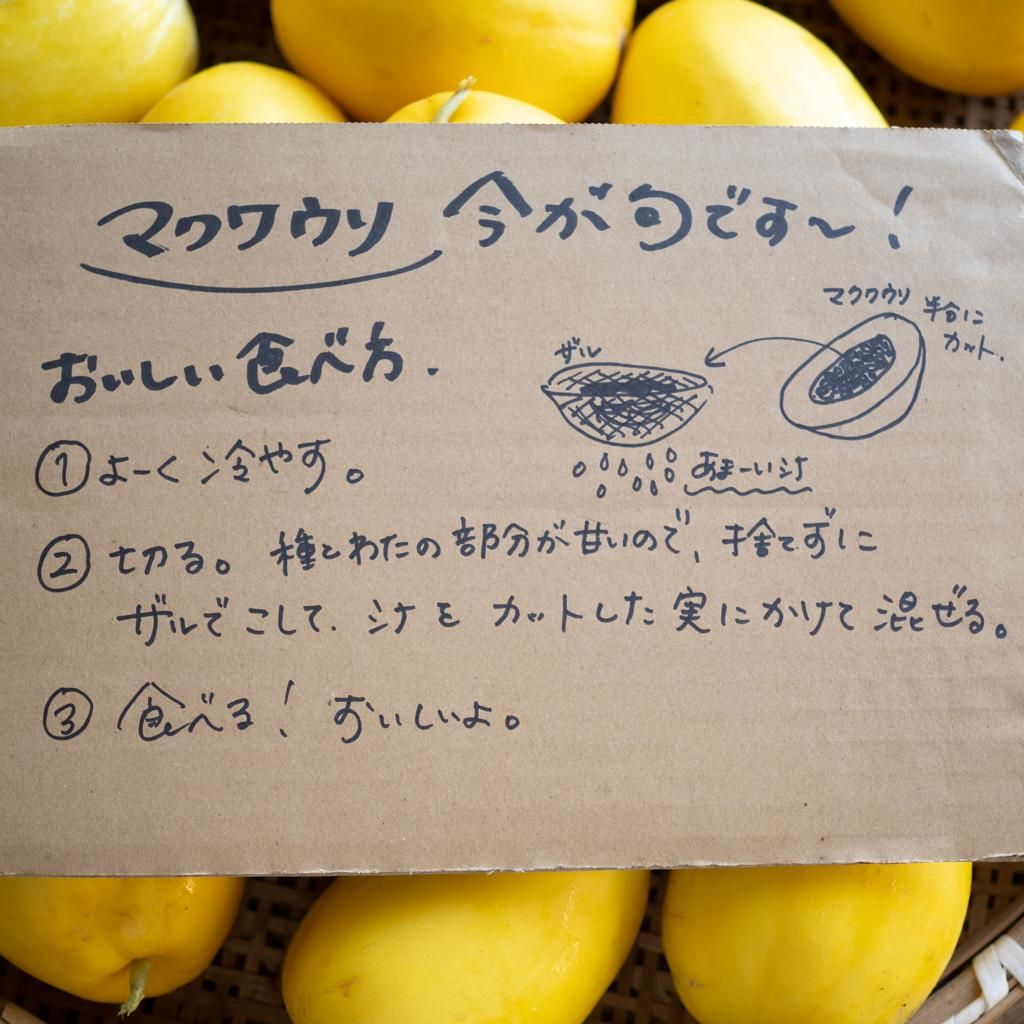 マクワウリ 今が旬です〜!
おいしい食べ方.
マクワウリ 半分に
カット.
ザル
あまーい汁
① よーく冷やす。
② 切る。種とわたの部分が甘いので、捨てずに
ザルでこして、汁をカットした実にかけて混ぜる。
③ 食べる! おいしいよ。